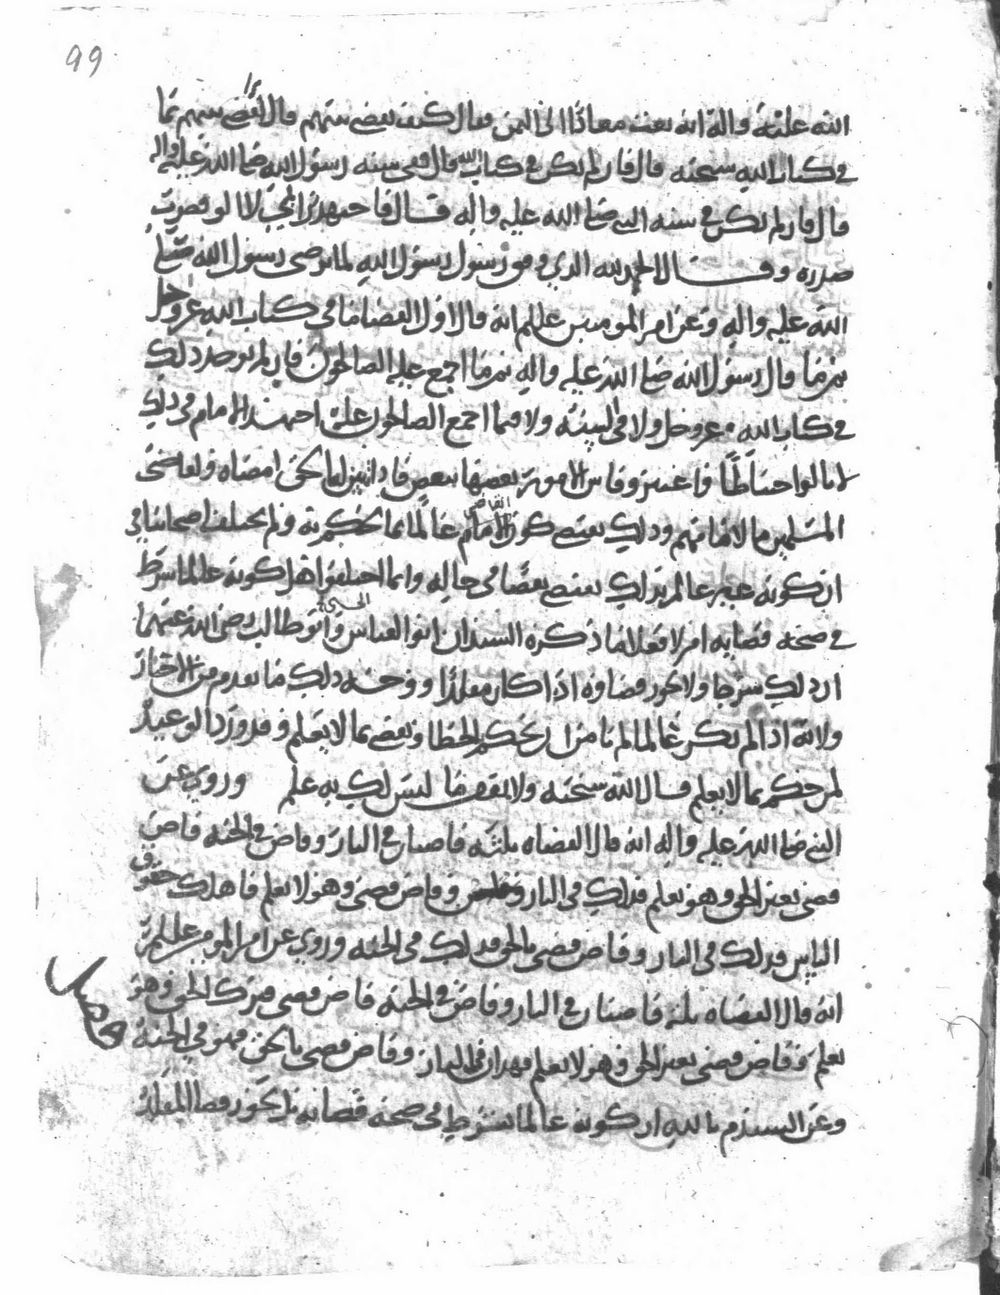 99
الله عليه واله انه بعث معاذا الى اليمن فقال كيف تقضي بينهم قال اقضي بينهم بما
في كتاب الله سبحنه قال فان لم يكن في كتاب الله قال ففي سنه رسول الله صلى الله عليه واله
قال فان لم يكن في سنه النبي صلى الله عليه واله قال فاجتهد رايي لا الو فضرب
صدره وقال الحمد لله الذي وفق رسول رسول الله لما يرضى رسول الله صلى
الله عليه واله وعن امير المومنين علالم انه قال اول القضا ما في كتاب الله عز وجل
ثم ما قال رسول الله صلى الله عليه واله ثم ما اجمع عليه الصالحون فان لم يوجد ذلك
في كتاب الله عز وجل ولا في السنه ولا فيما اجمع الصالحون عليه اجتهد الامام في ذلك
لا يالوا احتياطا فاعتبر وقاس الامور بعضها ببعض فاذا تبين له الحق امضاه ولقاضي
المسلمين ما لامامهم وذلك يقتضي كون القاضي الامام عالما بما يحكم به ولم يختلف اصحابنا في
ان كونه غير عالم بذلك يقتضي نقصا في حاله وانما اختلفوا هل كونه عالما شرط
في صحه قضائه ام لا فعندنا ذكره السيدان ابو العباس الحسني وابو طالب رضي الله عنهما
ان ذلك شرط ولا يجوز قضاوه اذا كان مقلدا ووجه ذلك ما تقدم من الاخبار
ولانه اذا لم يكن عالما لم يامن ان يحكم بالخطا ويقضي بما لا يعلم وقد ورد الوعيد
لمن حكم بما لا يعلم قال الله سبحنه ولا تقف ما ليس لك به علم وروي عن
النبي صلى الله عليه واله انه قال القضاه ثلثه قاضيان في النار وقاض في الجنه قاض
قضى بغير الحق وهو يعلم فذلك في النار وقاض قضى وهو لا يعلم فاهلك حقوق
الناس فذلك في النار وقاض قضى بالحق فذلك في الجنه وروي عن امير المومنين علالم
انه قال القضاه ثلثه قاضيان في النار وقاض في الجنه قاض قضى فترك الحق وهو
يعلم وقاض قضى بغير الحق وهو لا يعلم فهذان في النار وقاض قضى بالحق فهو في الجنه
وعن السيد م بالله ان كونه عالما بشرط في صحه قضائه بل يجوز قضا المقلد